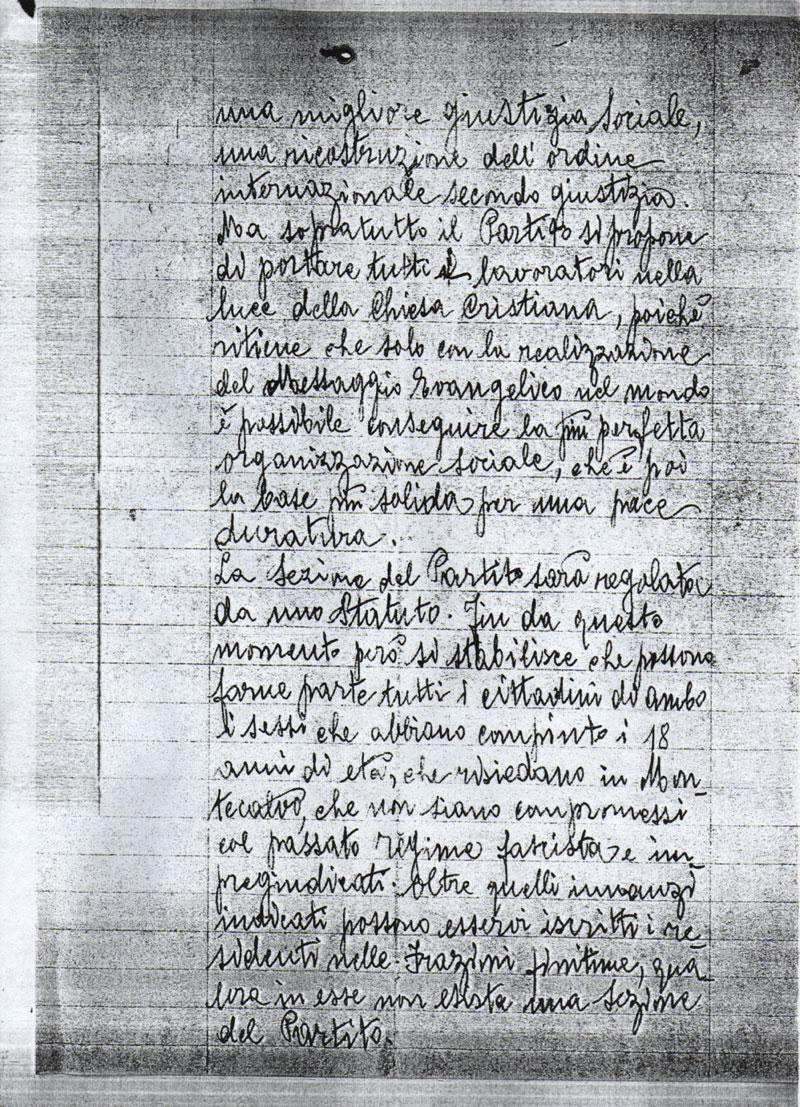 una migliore giustizia sociale,
una ricostruzione dell'ordine
internazionale secondo giustizia.
Ma sopratutto il Partito si propone
di portare tutti i lavoratori nella
luce della Chiesa Cristiana, poiché
ritiene che solo con la realizzazione
del Messaggio Evangelico nel mondo
è possibile conseguire la più perfetta
organizzazione sociale, che è poi
la base più solida per una pace
duratura.
La Sezione del Partito sarà regolata
da uno Statuto. Fin da questo
momento però si stabilisce che possono
farne parte tutti i cittadini di ambo
i sessi che abbiano compiuto i 18
anni di età, che risiedano in Mon-
tecalvo, che non siano compromessi
col passato regime fascista e im-
pregiudicati. Oltre quelli innanzi
indicati possono esservi iscritti i re-
sidenti nelle Frazioni finitime, qua-
lora in esse non esista una Sezione
del Partito.